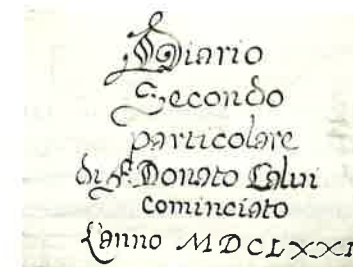 Diario
Secondo
particolare
di F. Donato Calvi
cominciato
L'anno MDCLXXI